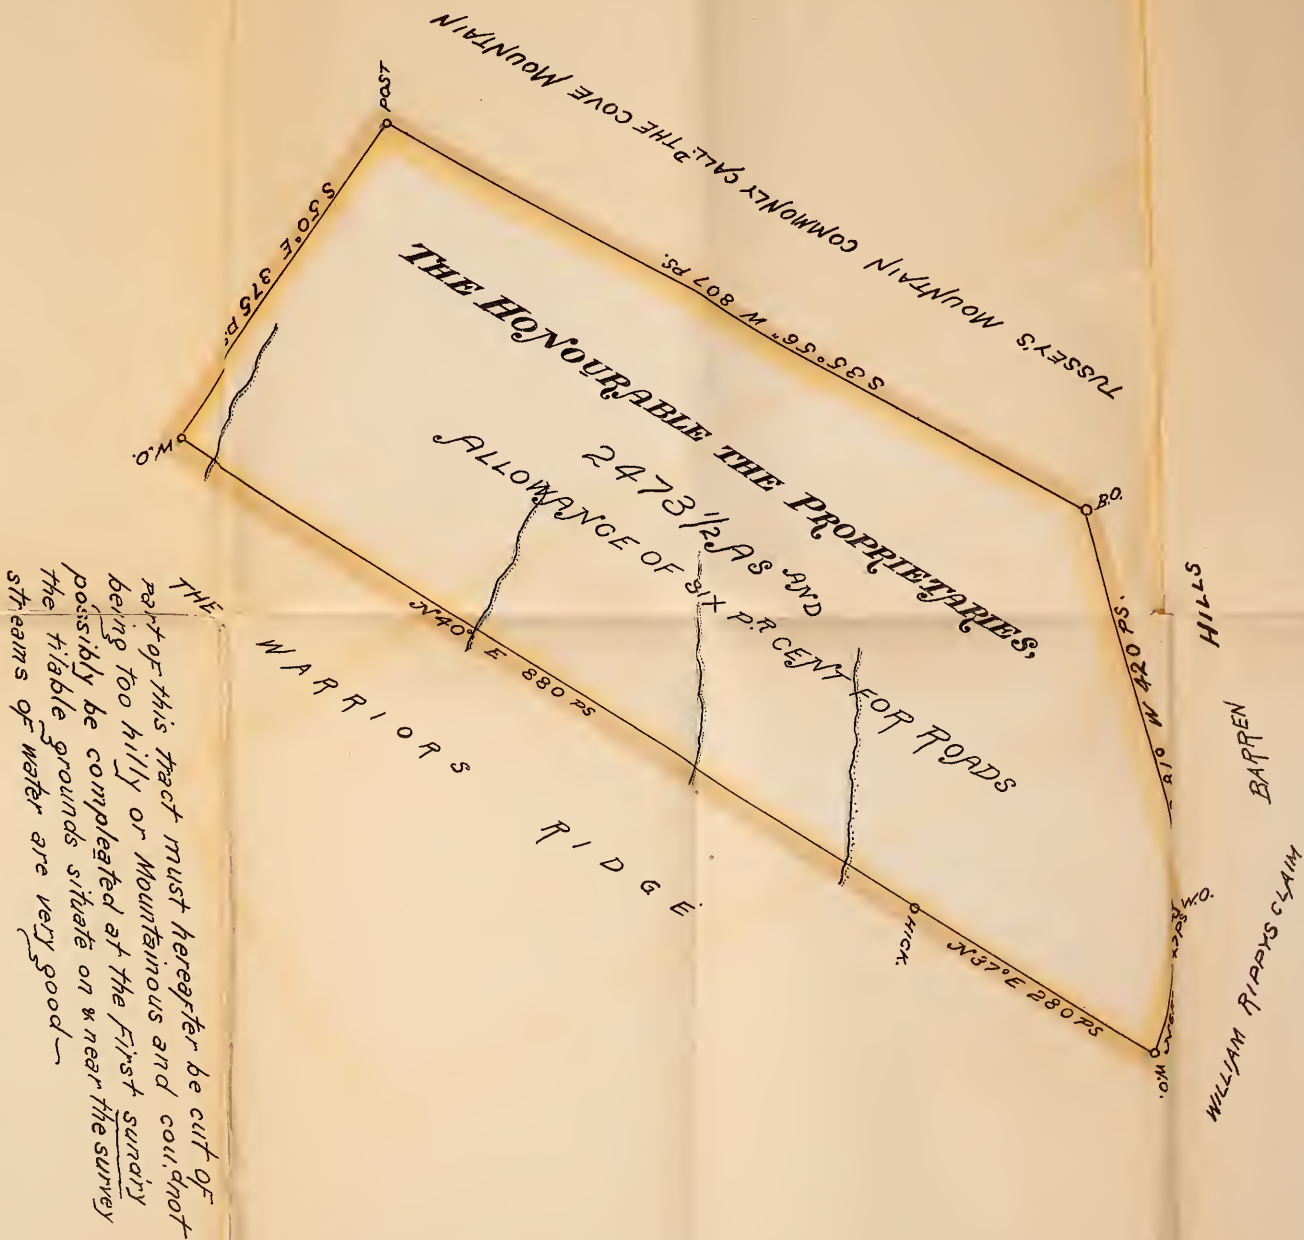 TUSSEY'S MOUNTAIN COMMONLY CALL.D THE COVE MOUNTAIN
POST
S 50° E 375 P.S
S 35° 56" W 807 PS.
THE HONOURABLE THE PROPRIETARIES,
2473 1/2 AS AND
ALLOWANCE OF SIX P.R CENT FOR ROADS
W.O.
B.O.
W 420 PS.
HILLS
BARREN
N 40° E 880 PS
THE
WARRIORS
RIDGE
HICK.
N 37° E 280 PS
W.O.
W.O.
WILLIAM RIPPYS CLAIM
part of this tract must hereafter be cut of
being too hilly or Mountainous and cou.d not
possibly be compleated at the First sundiry
the tilable grounds situate on & near the survey
streams of water are very good—